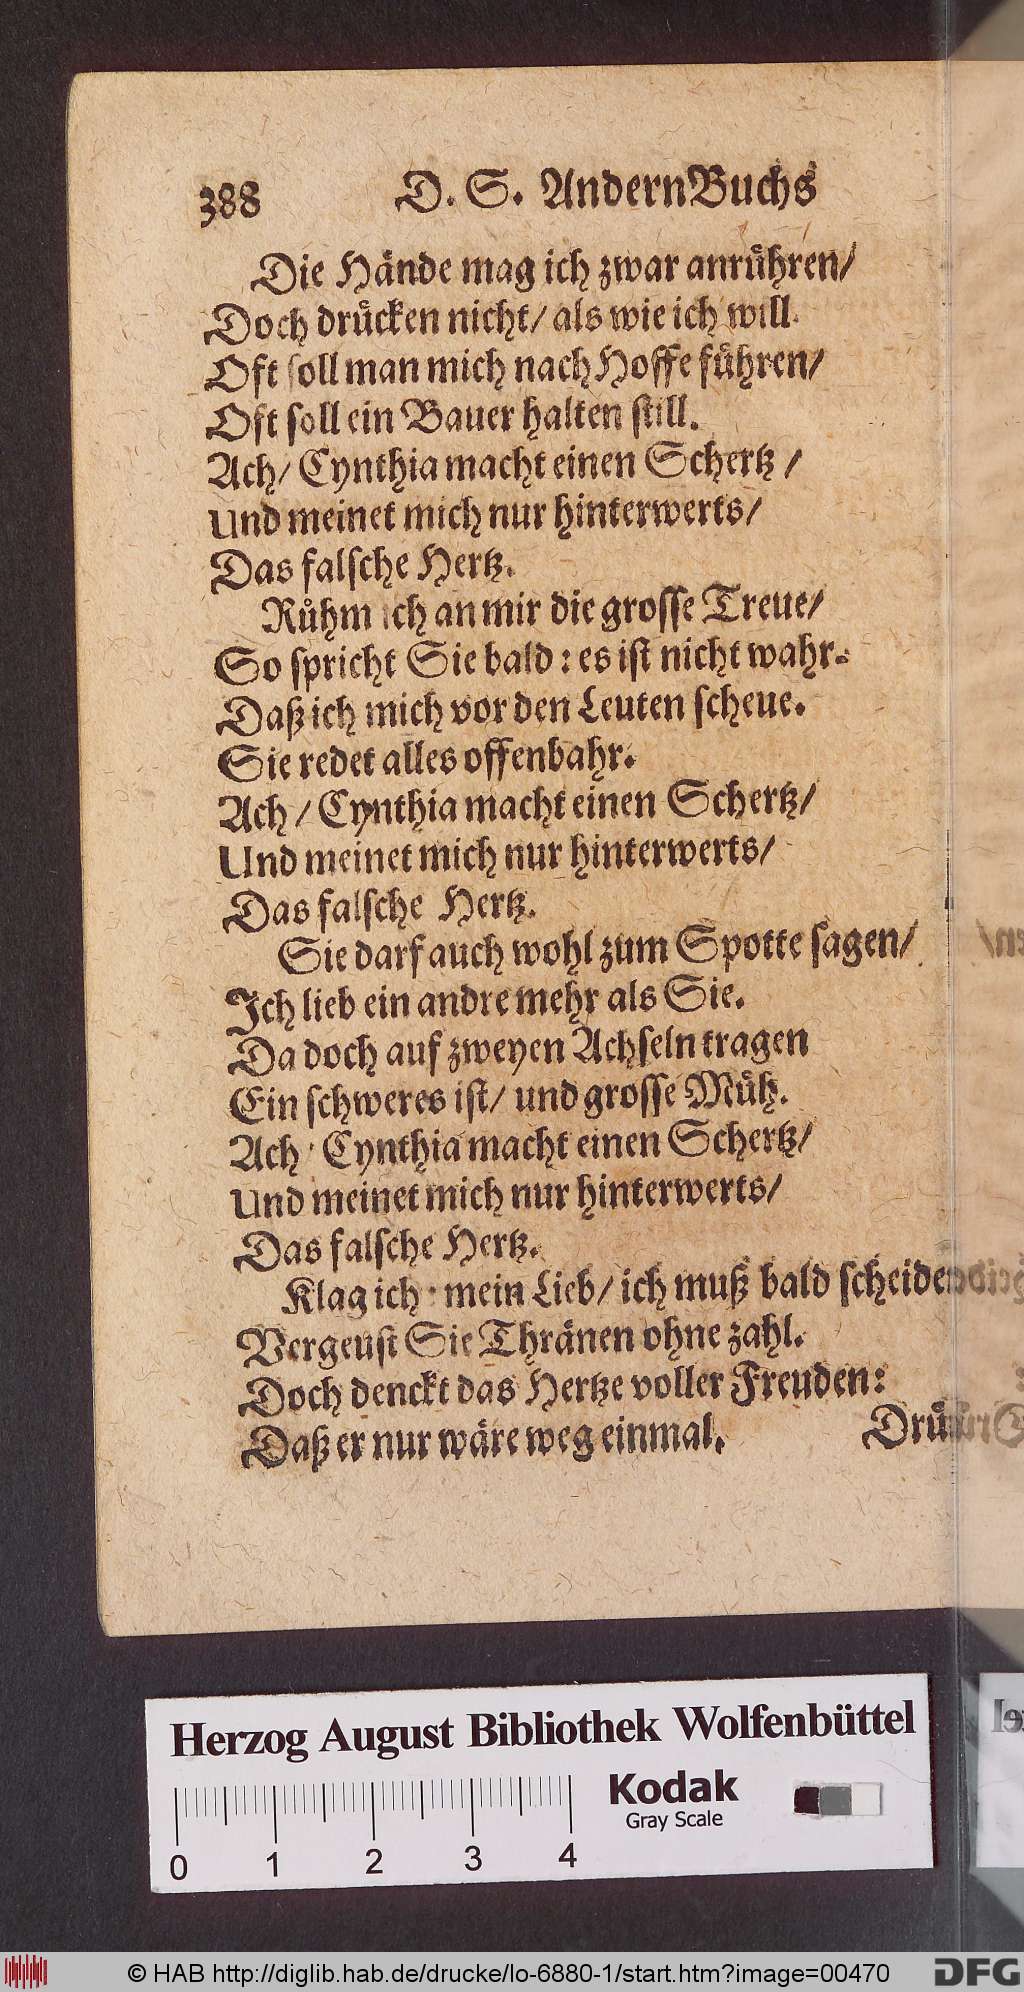 388 D. S. Andern Buchs
Die Hände mag ich zwar anrühren/
Doch drücken nicht/ als wie ich will.
Oft soll man mich nach Hoffe führen/
Oft soll ein Bauer halten still.
Ach/ Cynthia macht einen Schertz /
Und meinet mich nur hinterwerts/
Das falsche Hertz.
Rühm ich an mir die grosse Treue/
So spricht Sie bald: es ist nicht wahr.
Daß ich mich vor den Leuten scheue.
Sie redet alles offenbahr.
Ach / Cynthia macht einen Schertz/
Und meinet mich nur hinterwerts/
Das falsche Hertz.
Sie darf auch wohl zum Spotte sagen/
Ich lieb ein andre mehr als Sie.
Da doch auf zweyen Achseln tragen
Ein schweres ist/ und grosse Müh.
Ach / Cynthia macht einen Schertz/
Und meinet mich nur hinterwerts/
Das falsche Hertz.
Klag ich : mein Lieb/ ich muß bald scheiden
Vergeust Sie Thränen ohne zahl.
Doch denckt das Hertze voller Freuden:
Daß er nur wäre weg einmal. Drü
Herzog August Bibliothek Wolfenbüttel
Kodak
Gray Scale
0 1 2 3 4
© HAB http://diglib.hab.de/drucke/lo-6880-1/start.htm?image=00470
DFG